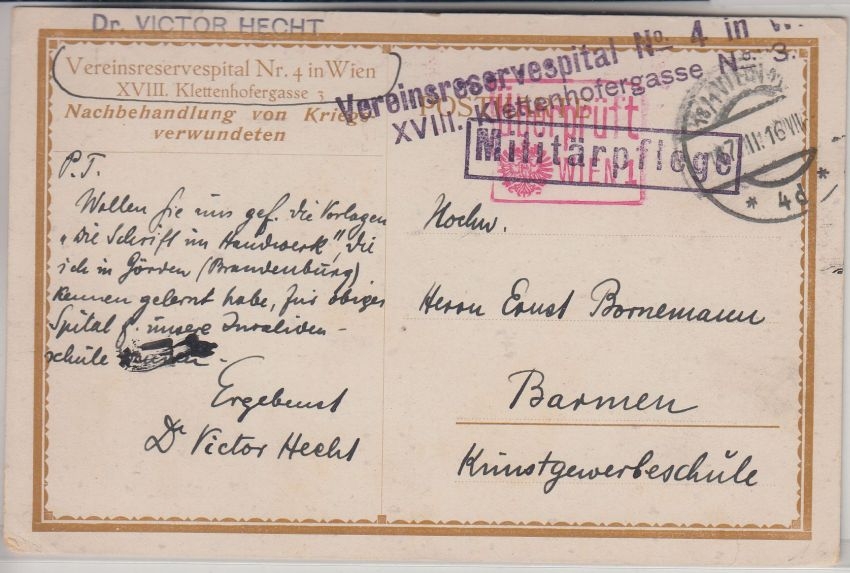 Dr. VICTOR HECHT
Vereinsreservespital Nr. 4 in Wien
XVIII. Klettenhofergasse 3
Nachbehandlung von Kriegs-
verwundeten
P. T.
Wollen Sie uns gef. die Vorlagen
"Die Schrift im Handwerk", die
ich in Görden (Brandenburg)
kennen gelernt habe, für obiges
Spital f. unsere Invaliden-
schule
Ergebenst
Dr Victor Hecht
Vereinsreservespital No. 4 in W.
XVIII. Klettenhofergasse No. 3.
Überprüft
WIEN 1
Militärpflege
18/1 WIEN
VIII 16 VIII
* 4d *
Hochw.
Herrn Ernst Bornemann
Barmen
Kunstgewerbeschule